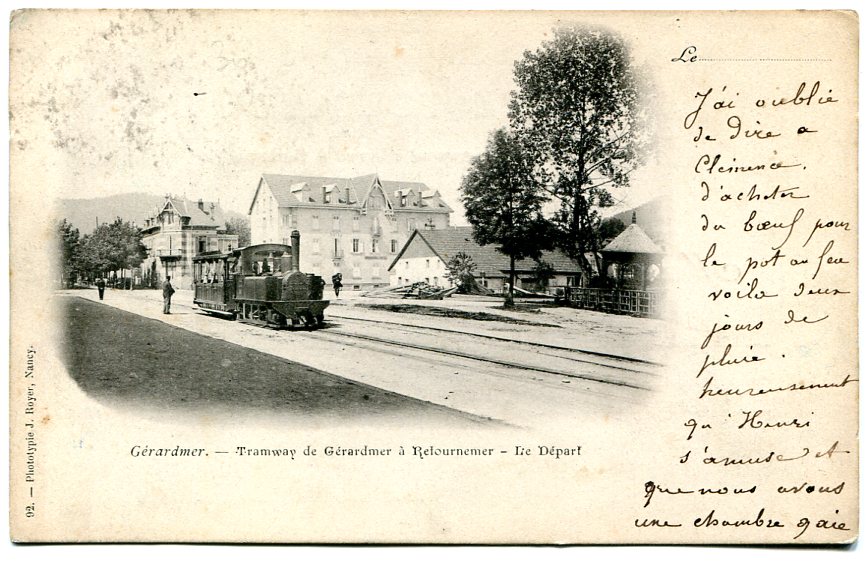 Le
J'ai oublié
de dire a
Clémence,
d'acheter
du bœuf pour
le pot au feu
voila deux
jours de
pluie.
heureusement
qu'Henri
s'amuse et
que nous avons
une chambre gaie
Gérardmer. — Tramway de Gérardmer à Retournemer - Le Départ
92. — Phototypie J. Royer, Nancy.